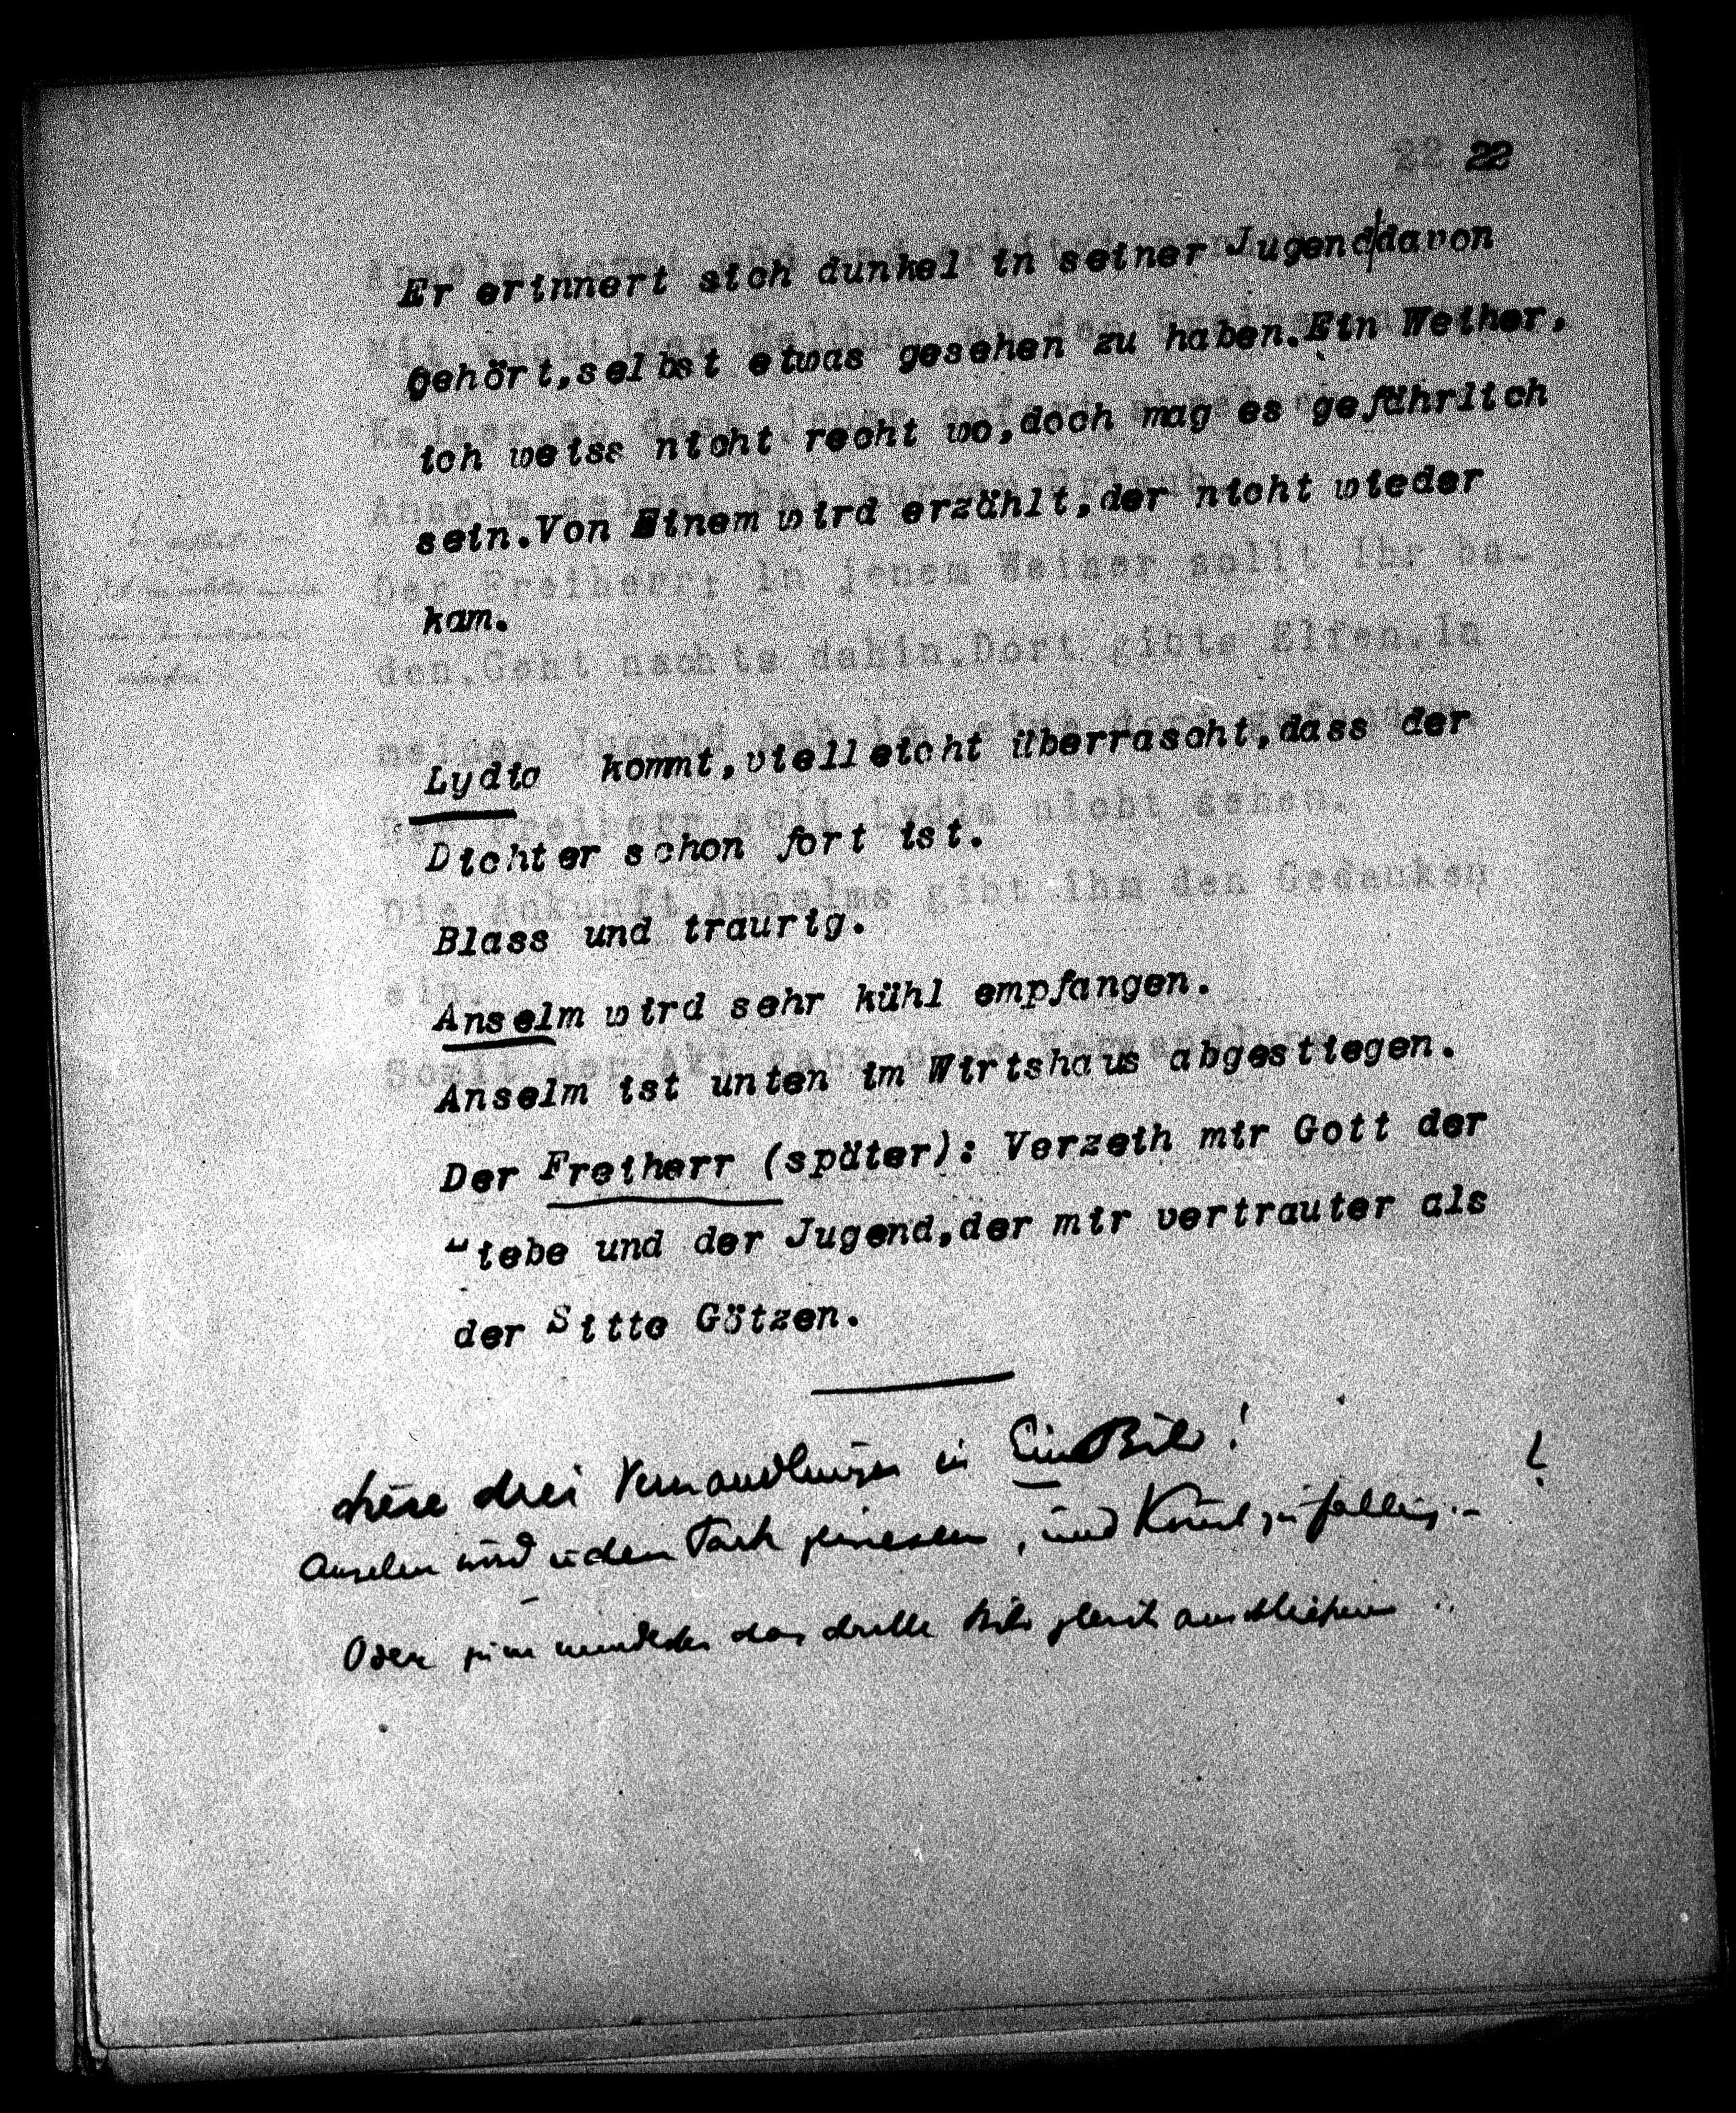 22
Er erinnert sich dunkel in seiner Jugend davon
gehört, selbst etwas gesehen zu haben. Ein Weiher,
ich weiss nicht recht wo, doch mag es gefährlich
sein. Von Einem wird erzählt, der nicht wieder
kam.
Lydia kommt, vielleicht überrascht, dass der
Dichter schon fort ist.
Blass und traurig.
Anselm wird sehr kühl empfangen.
Anselm ist unten im Wirtshaus abgestiegen.
Der Freiherr (später): Verzeih mir Gott der
Liebe und der Jugend, der mir vertrauter als
der Sitte Götzen.
diese drei Verwandlungen in Ein Bild!
Anselm wird in den Park gewiesen, und
Oder das dritte Bild gleich anschliessen ..